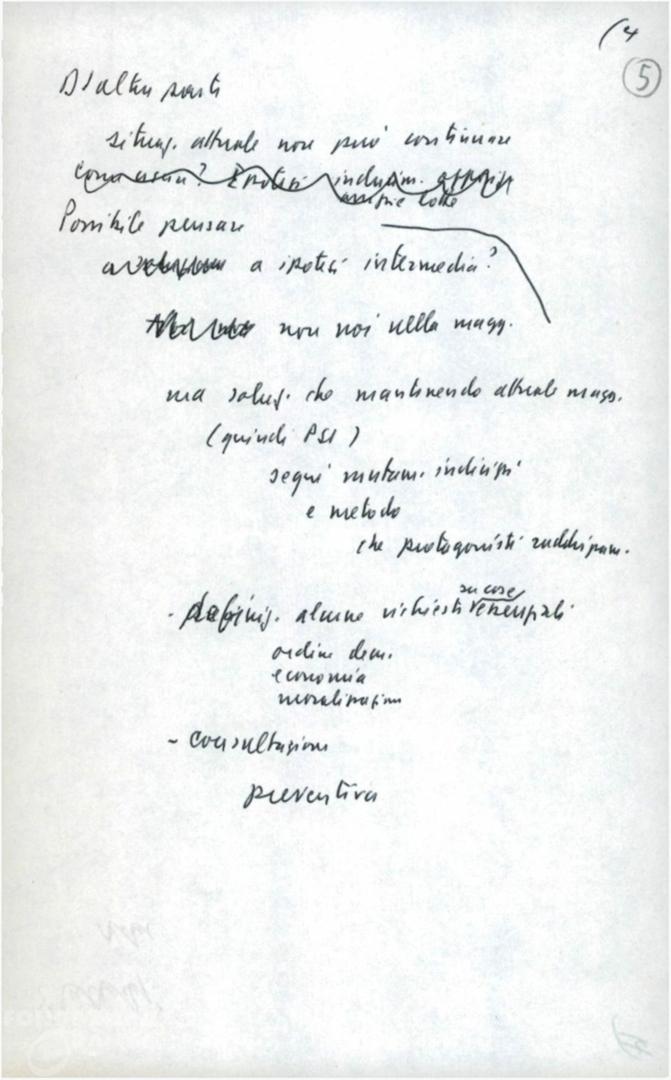 (4
5
D'altra parte
situaz. attuale non può continuare
come uscirne? Ipotesi
ampie lotte
Possibile pensare
a ipotesi intermedia?
non noi nella magg.
ma soluz. che mantenendo attuale magg.
(quindi PSI)
segni mutam. indirizzi
e metodo
che protagonisti
su cose
- definiz. alcune richieste essenziali
ordine dem.
economia
moralizzazione
- consultazione
preventiva